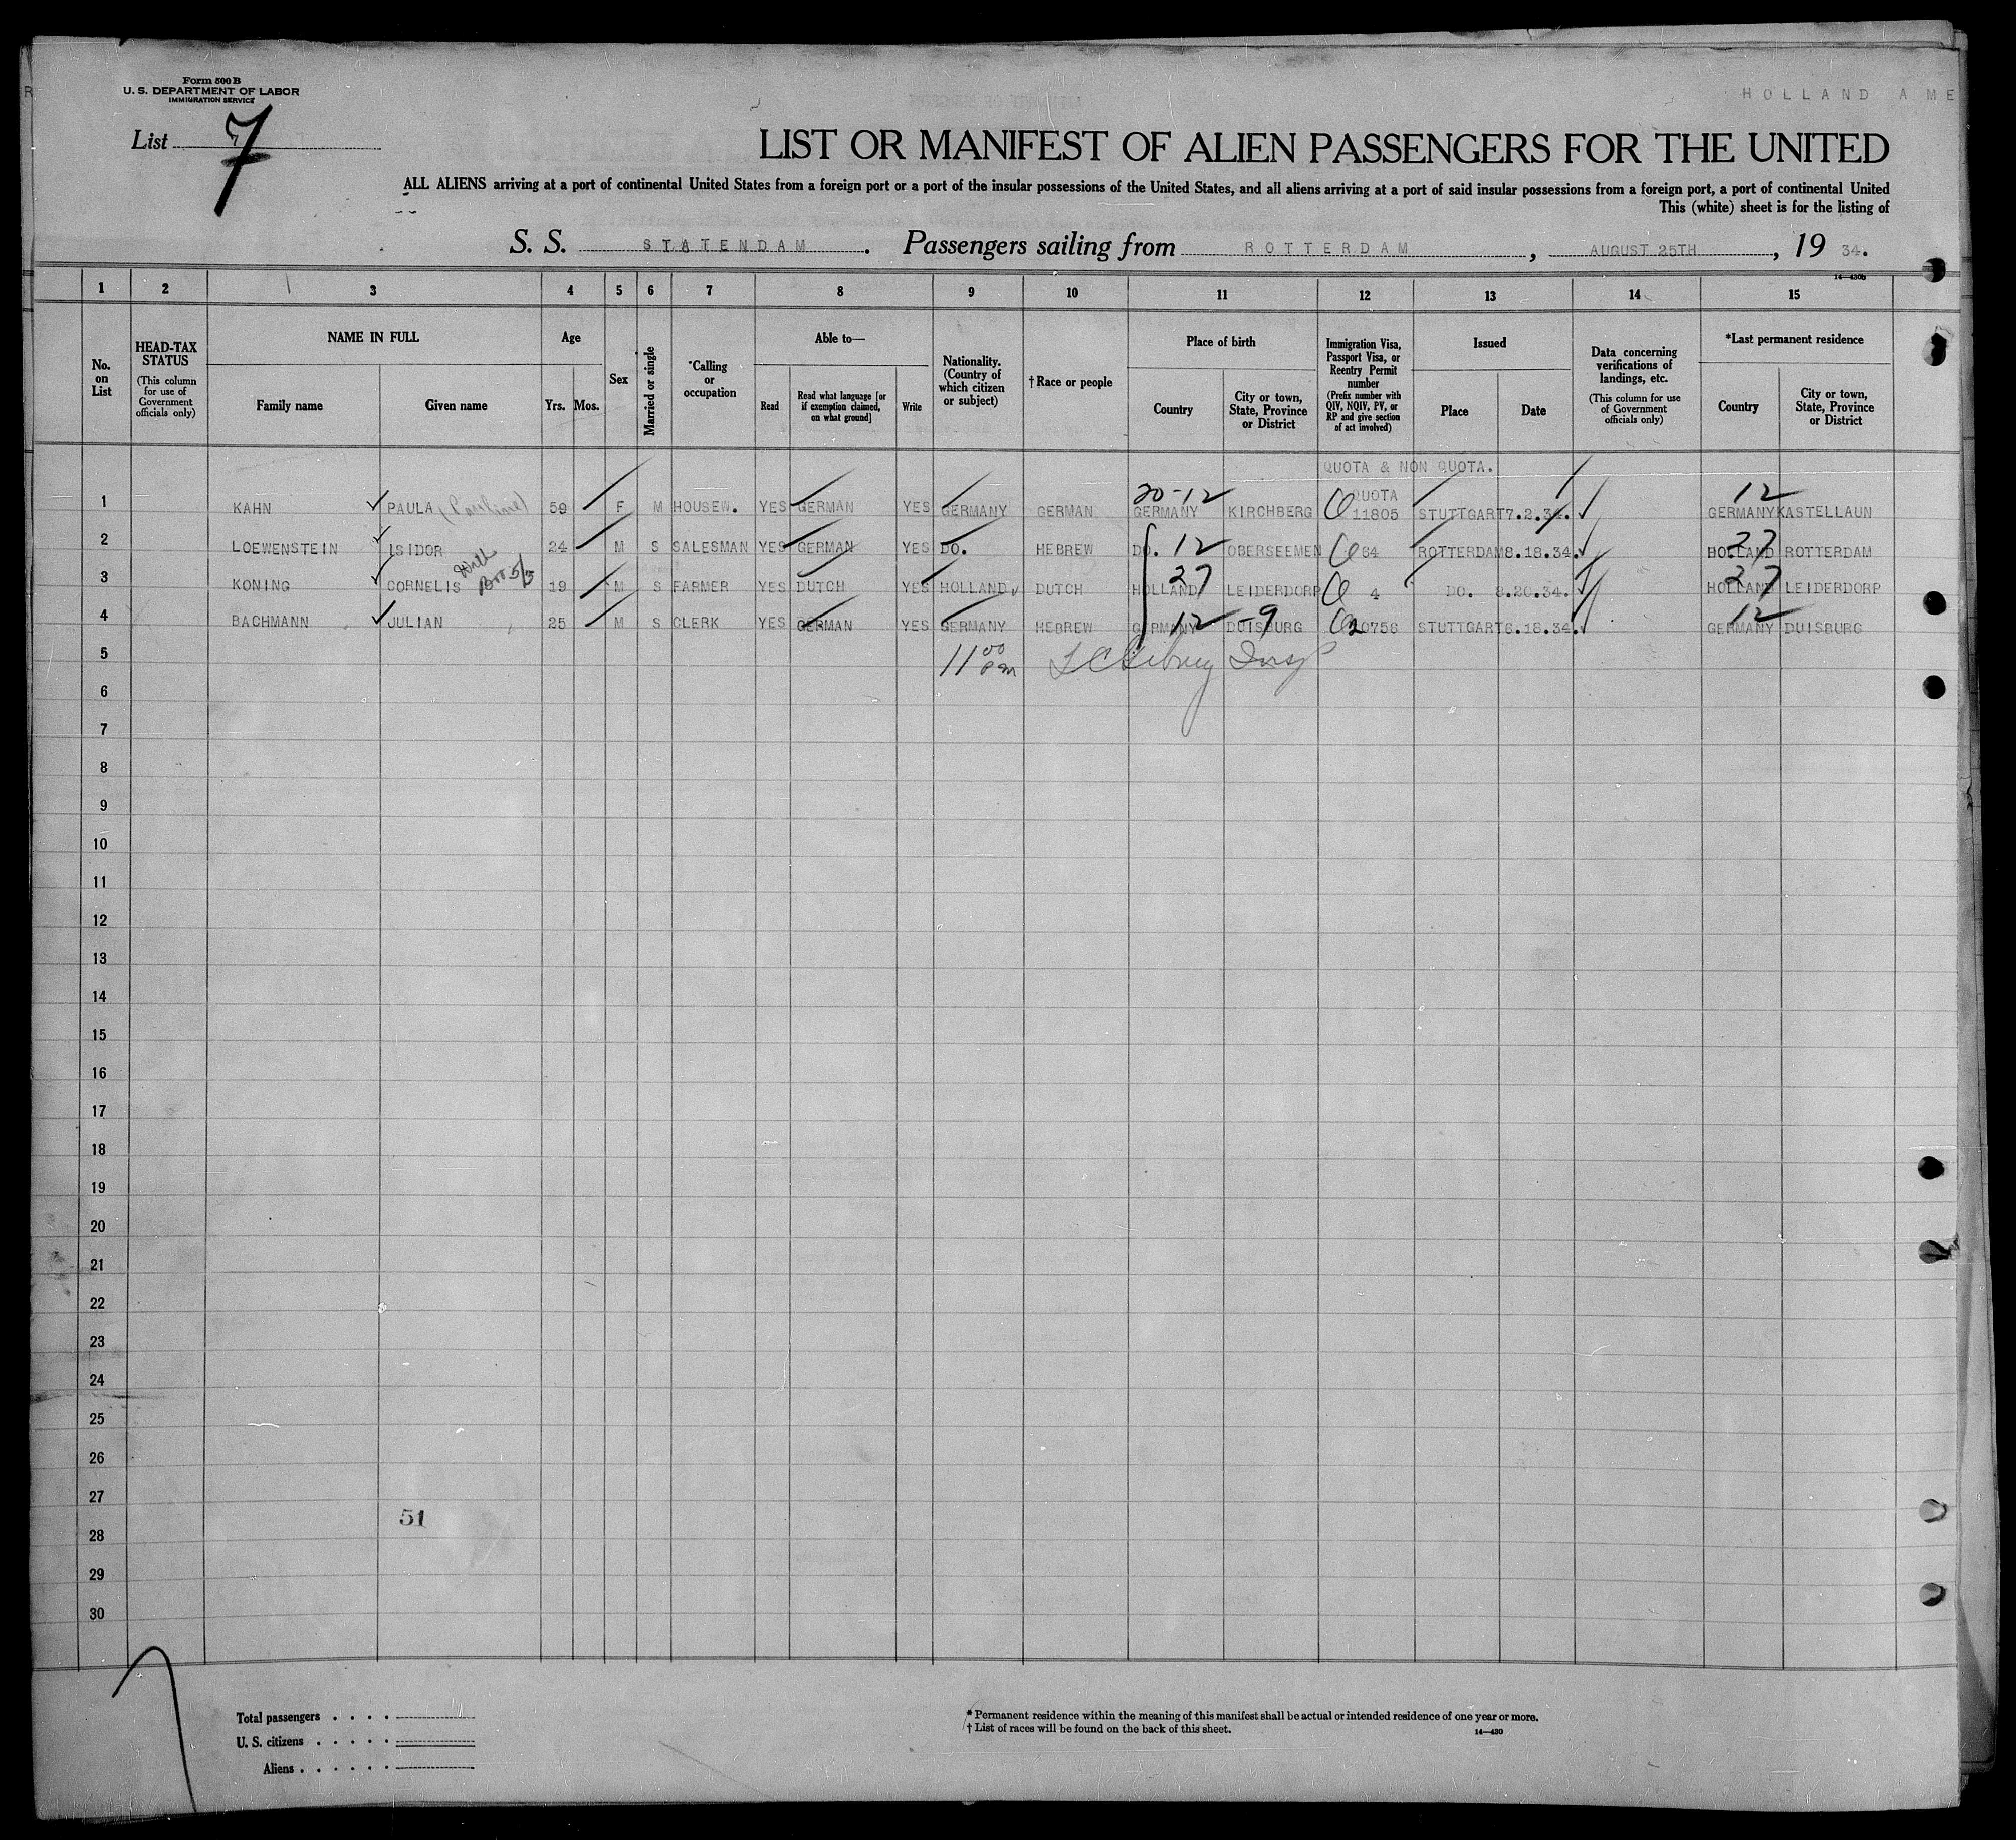 Form 500 B
U. S. DEPARTMENT OF LABOR
IMMIGRATION SERVICE
HOLLAND AME
List 7
LIST OR MANIFEST OF ALIEN PASSENGERS FOR THE UNITED
ALL ALIENS arriving at a port of continental United States from a foreign port or a port of the insular possessions of the United States, and all aliens arriving at a port of said insular possessions from a foreign port, a port of continental United
This (white) sheet is for the listing of
S. S. STATENDAM. Passengers sailing from ROTTERDAM, AUGUST 25TH, 19 34.
14—430b
1 2 3 4 5 6 7 8 9 10 11 12 13 14 15
No. on List
HEAD-TAX STATUS (This column for use of Government officials only)
NAME IN FULL
Family name
Given name
Age
Yrs. Mos.
Sex
Married or single
*Calling or occupation
Able to—
Read
Read what language [or if exemption claimed, on what ground]
Write
Nationality. (Country of which citizen or subject)
†Race or people
Place of birth
Country
City or town, State, Province or District
Immigration Visa, Passport Visa, or Reentry Permit number (Prefix number with QIV, NQIV, PV, or RP and give section of act involved)
Issued
Place
Date
Data concerning verifications of landings, etc. (This column for use of Government officials only)
*Last permanent residence
Country
City or town, State, Province or District
QUOTA & NON QUOTA.
20-12 QUOTA 12
1 KAHN PAULA (Pauline) 59 F M HOUSEW. YES GERMAN YES GERMANY GERMAN GERMANY KIRCHBERG 11805 STUTTGART 7.2.34. GERMANY KASTELLAUN
2 LOEWENSTEIN ISIDOR 24 M S SALESMAN YES GERMAN YES DO. HEBREW DO. 12 OBERSEEMEN 64 ROTTERDAM 8.18.34. HOLLAND 27 ROTTERDAM
3 KONING CORNELIS With Bro 5/3 19 M S FARMER YES DUTCH YES HOLLAND DUTCH HOLLAND 27 LEIDERDORP 4 DO. 8.20.34. HOLLAND 27 LEIDERDORP
4 BACHMANN JULIAN 25 M S CLERK YES GERMAN YES GERMANY HEBREW GERMANY 12 -9 DUISBURG 20756 STUTTGART 6.18.34. GERMANY 12 DUISBURG
5 11 00 PM
6
7
8
9
10
11
12
13
14
15
16
17
18
19
20
21
22
23
24
25
26
27
51
28
29
30
Total passengers . . . .
U. S. citizens . . . . .
Aliens . . . . . .
* Permanent residence within the meaning of this manifest shall be actual or intended residence of one year or more.
† List of races will be found on the back of this sheet.
14—430